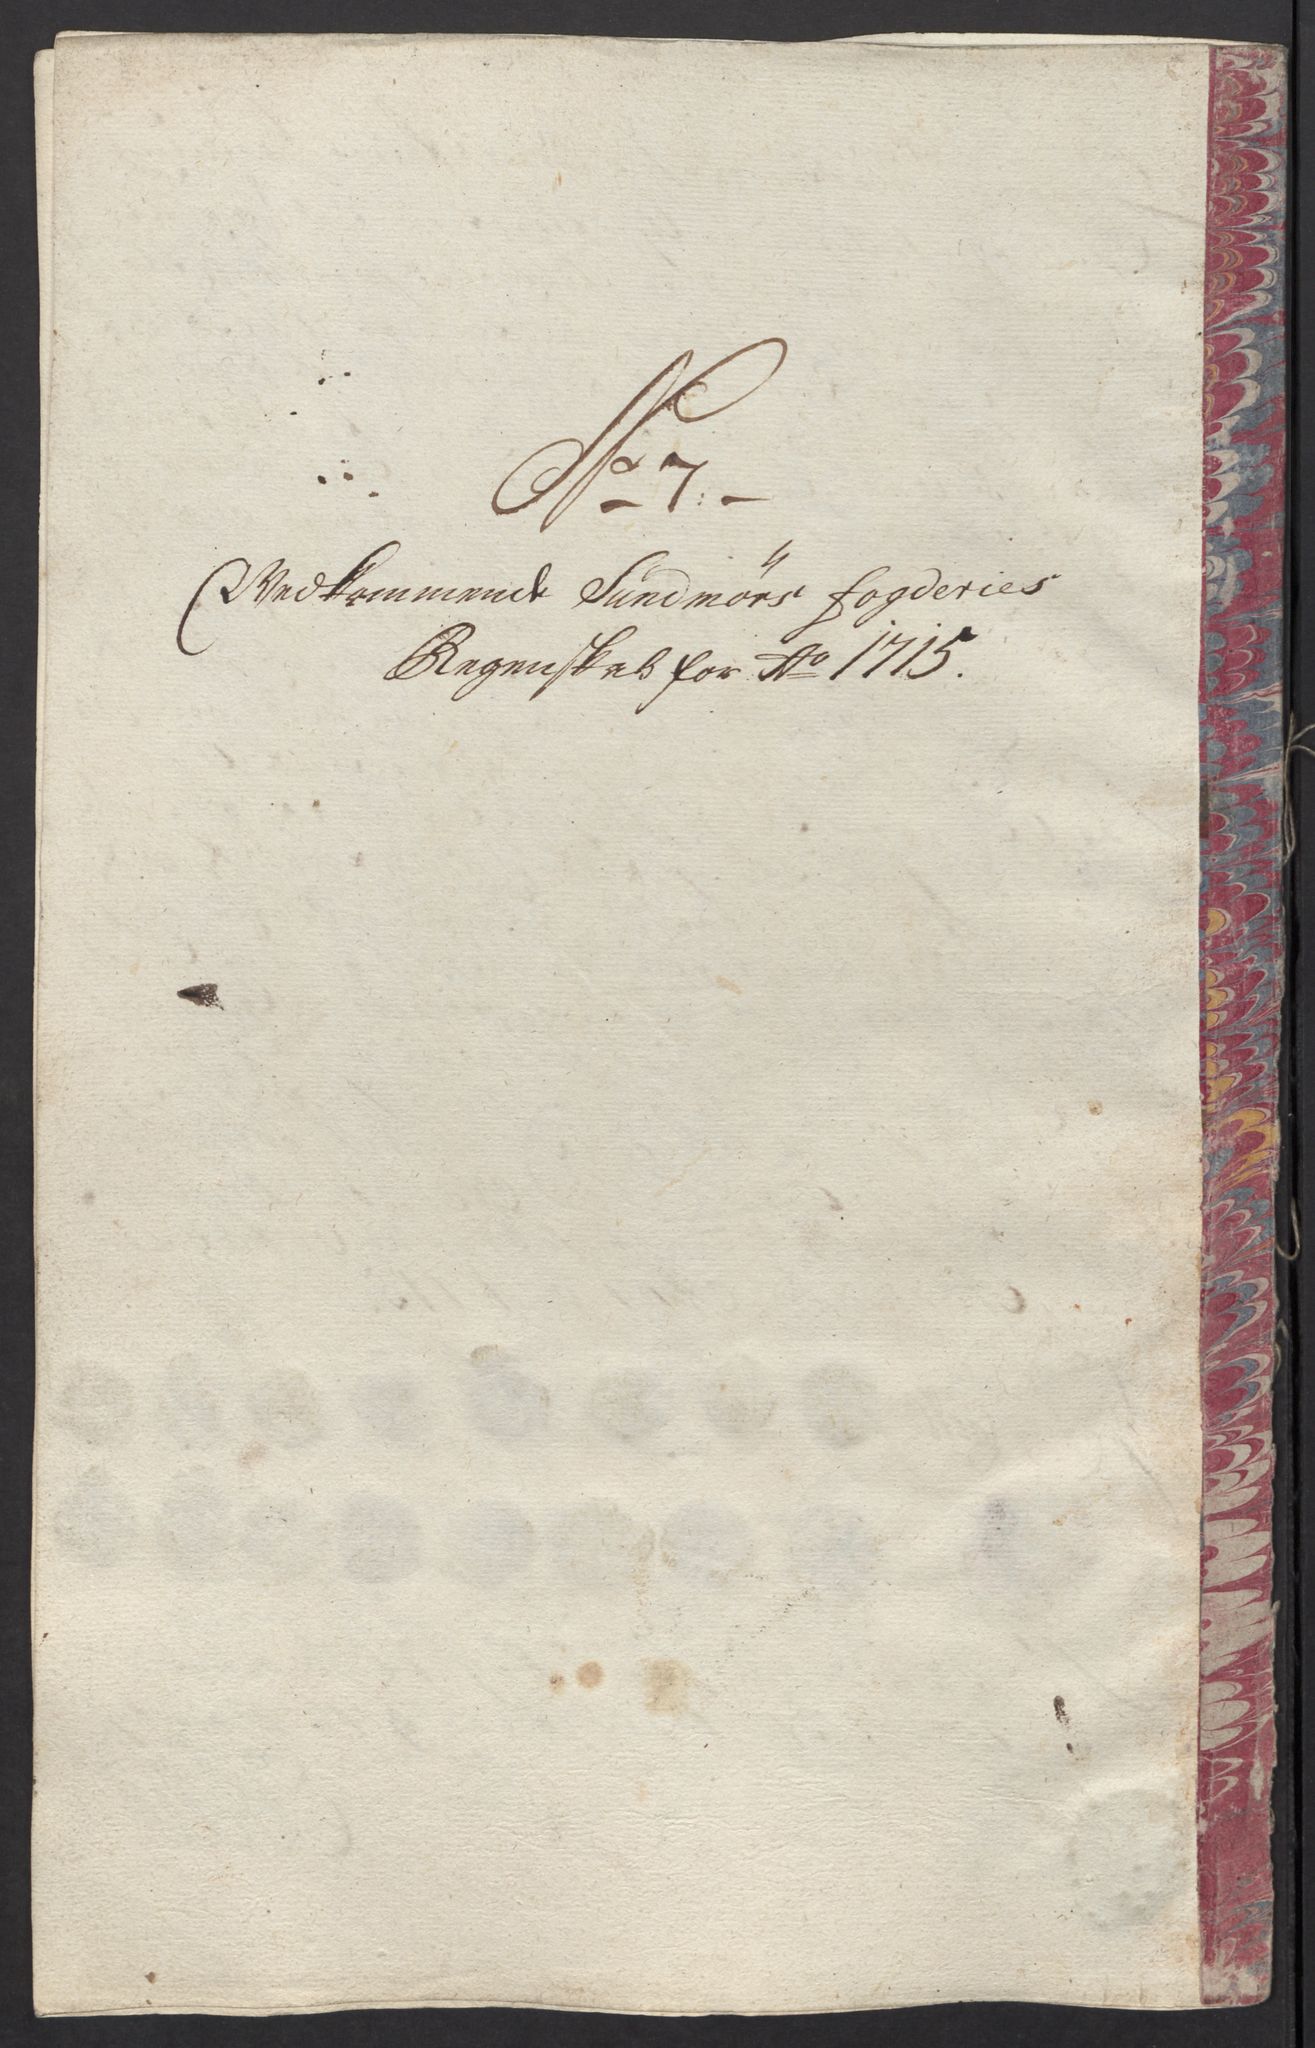 No 7.
Vedkommende Sundmörs fogderies
Regenskab for Ao 1715.